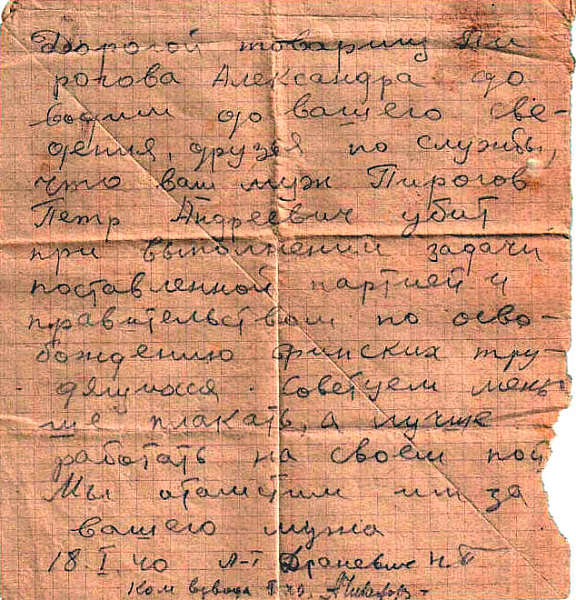 Дорогой товарищ Пи
рогова Александра до
водим до вашего све-
дения, друзья по службы,
что ваш муж Пирогов
Петр Андреевич убит
при выполнении задачи
поставленной партией и
правительством по осво-
бождению финских тру-
дящихся. Советуем мень
ше плакать, а лучше
работать на своем пос
Мы отомстим им за
вашего мужа
18.I.40 Л-т Драневич Н.
Ком взвода